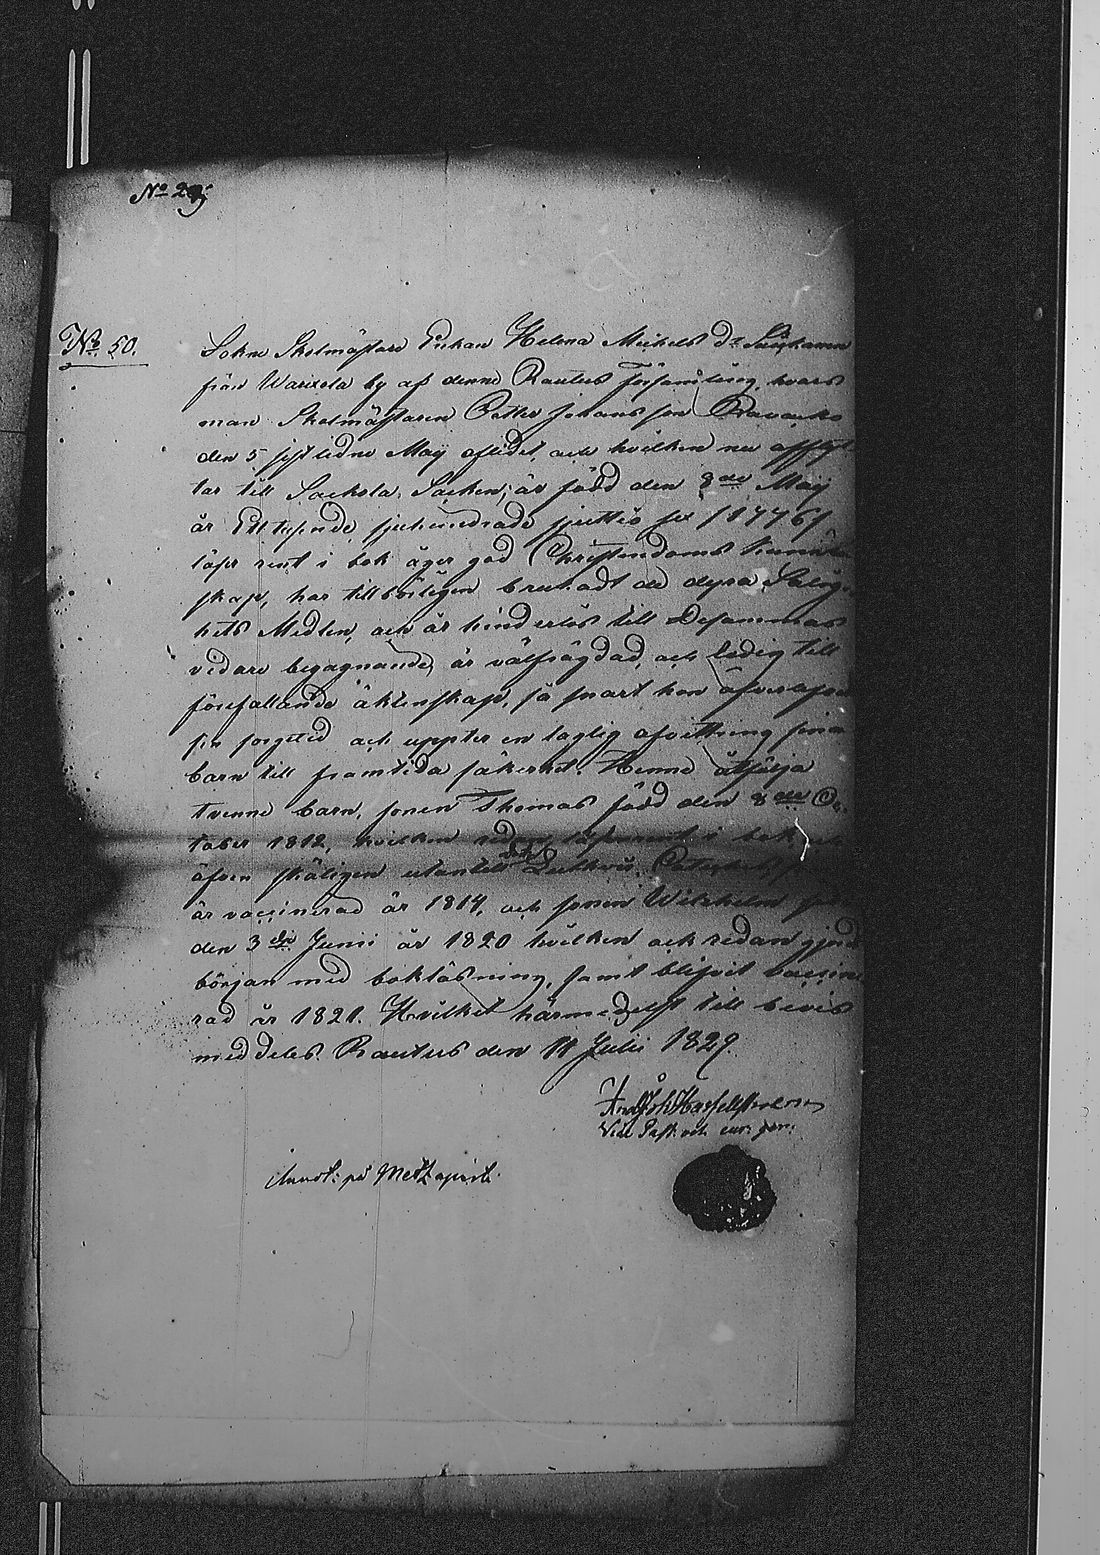 No 29.
No 50.
Sokne Skolmästare Enkan Helena Michels Dr
från Warixela by af denne Rautus Församling, hvars
man Skolmästaren Petter Johansson
den 5 sistledne Maij aflidet, och hvilken nu afflyt-
tar till Sackola Socken, är född den 8de Maij
år Ett tusende sjuhundrade sjuttio sex /1776/,
läser rent i bok äger god Christendoms kunnskap-
skap, har tillbörligen brukadt de dyra Salig-
hets Medlen, och är hinderlös till Desammas
vidare begagnande, är välfrägdad, och ledig till
förefallande äktenskap, så snart hon
sin sorgetid och uppter en laglig afvittring sina
barn till framtida säkerhet. Henne åtfölja
tvenne barn, sonen Thomas född den 8de Oc-
tober 1812, hvilken redan läser rent i bok och
äfven skäligen utantill Lutheri Cateches,
är vaccinerad år 1814, och sonen Wilhelm född
den 3de Junii år 1820 hvilken ock redan gjort
början med bokläsning, samt blifvit vaccine-
rad år 1821. Hvilket härmedelst till bevis
meddeles. Rautus den 11 Julii 1829.
And Joh Hasselblad
Vice Past. och
på